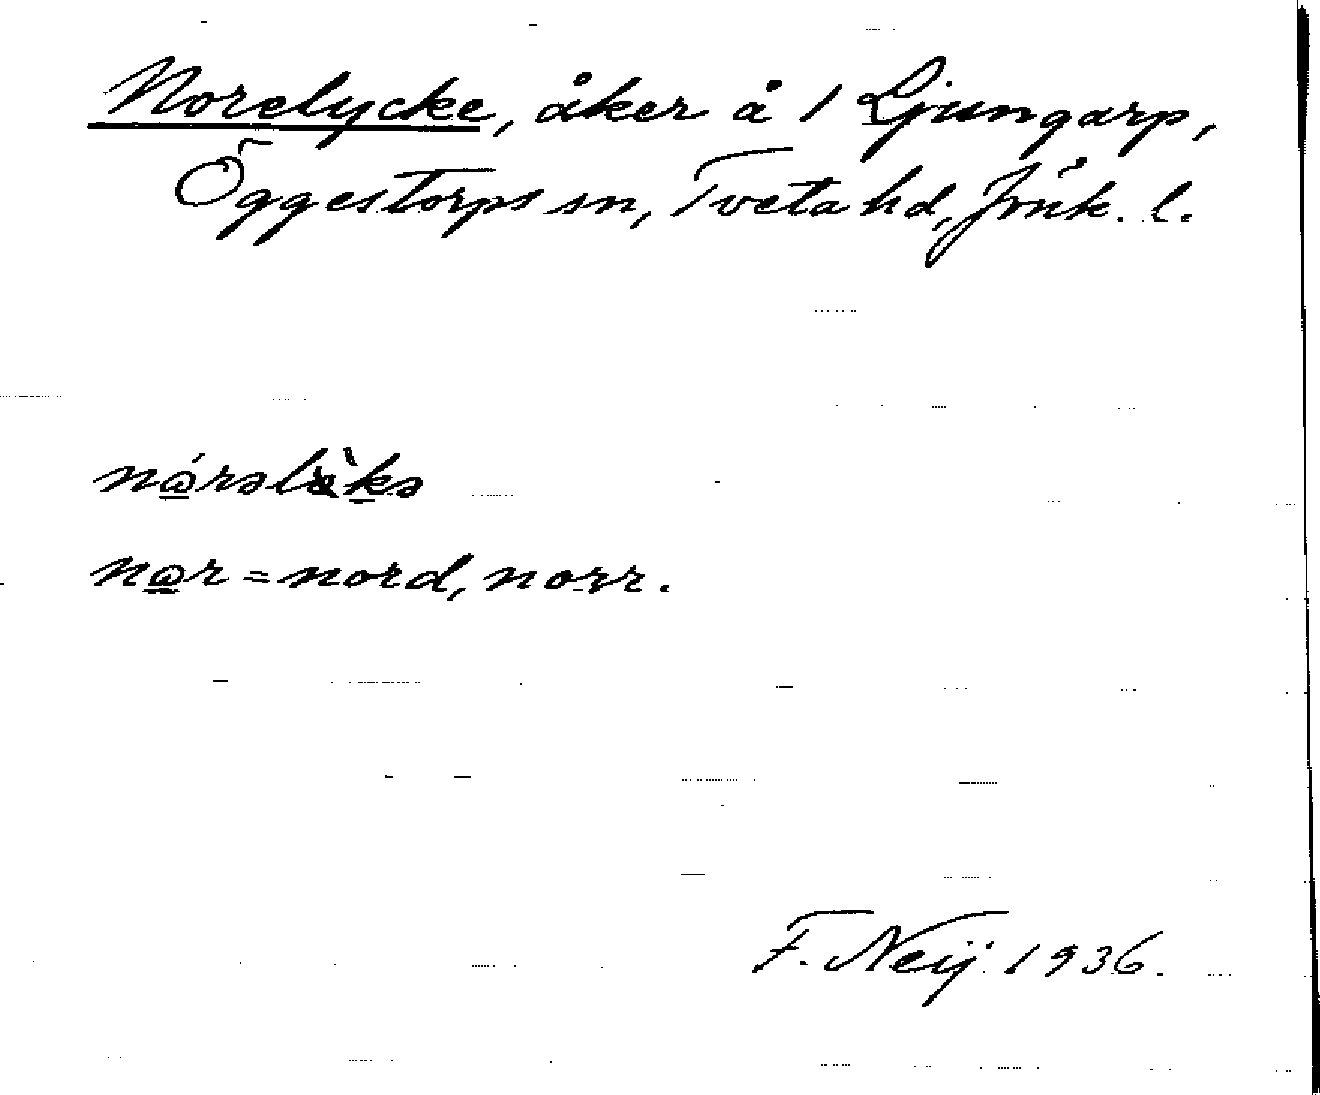 Norelycke, åker å 1 Ljungarp,
Öggestorps sn, Tveta hd, Jönk. l.
nar = nord, norr.
F. Neij 1936.